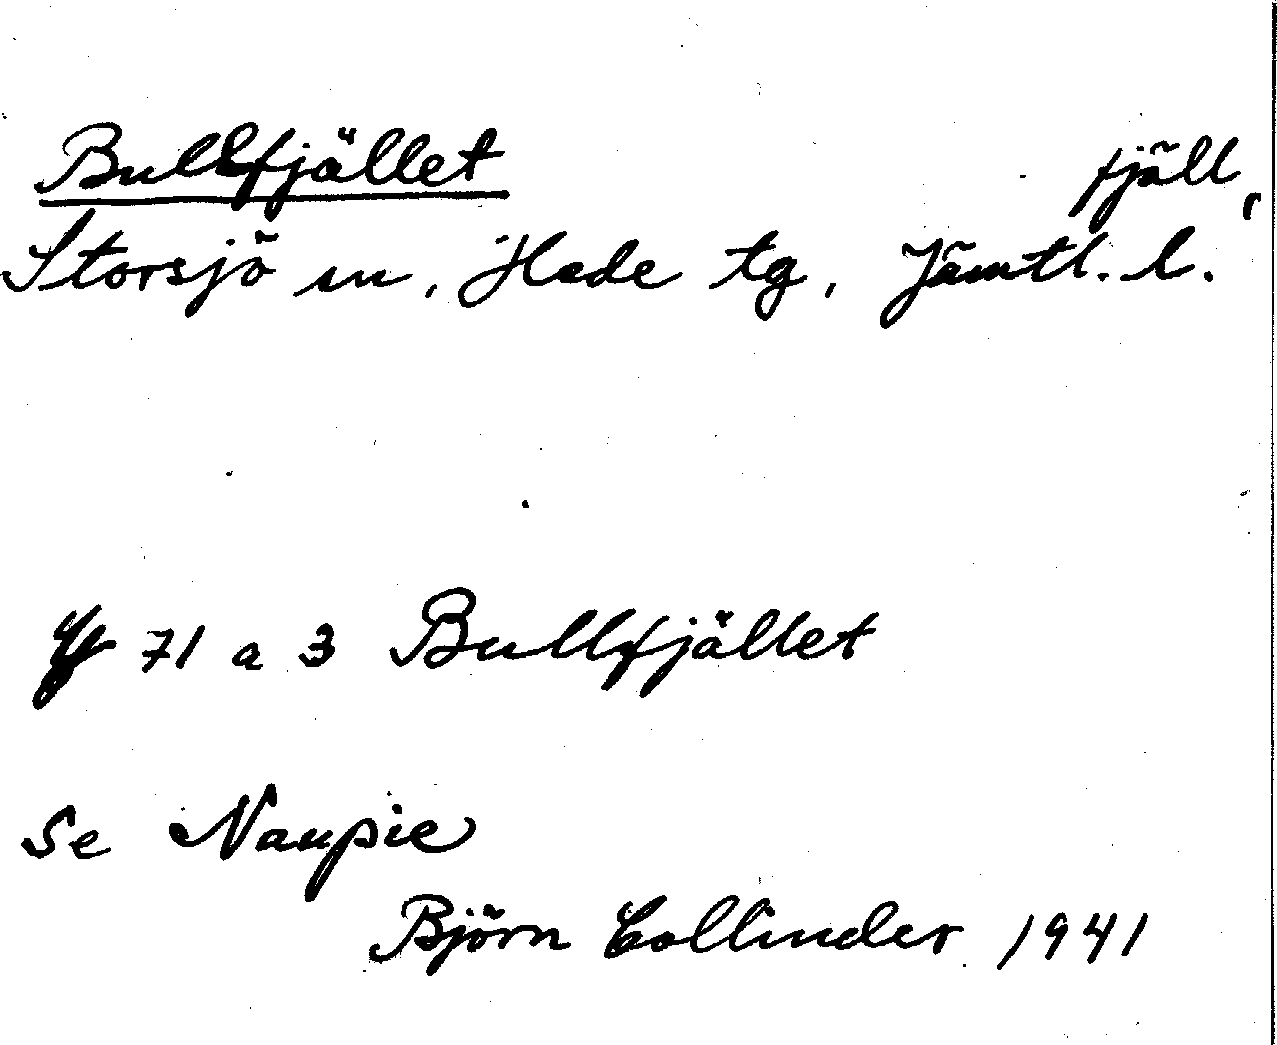 Bullfjället fjäll,
Storsjö sn, Hede tg, Jämtl. l.
71 a 3 Bullfjället
Se Naupie
Björn Collinder 1941